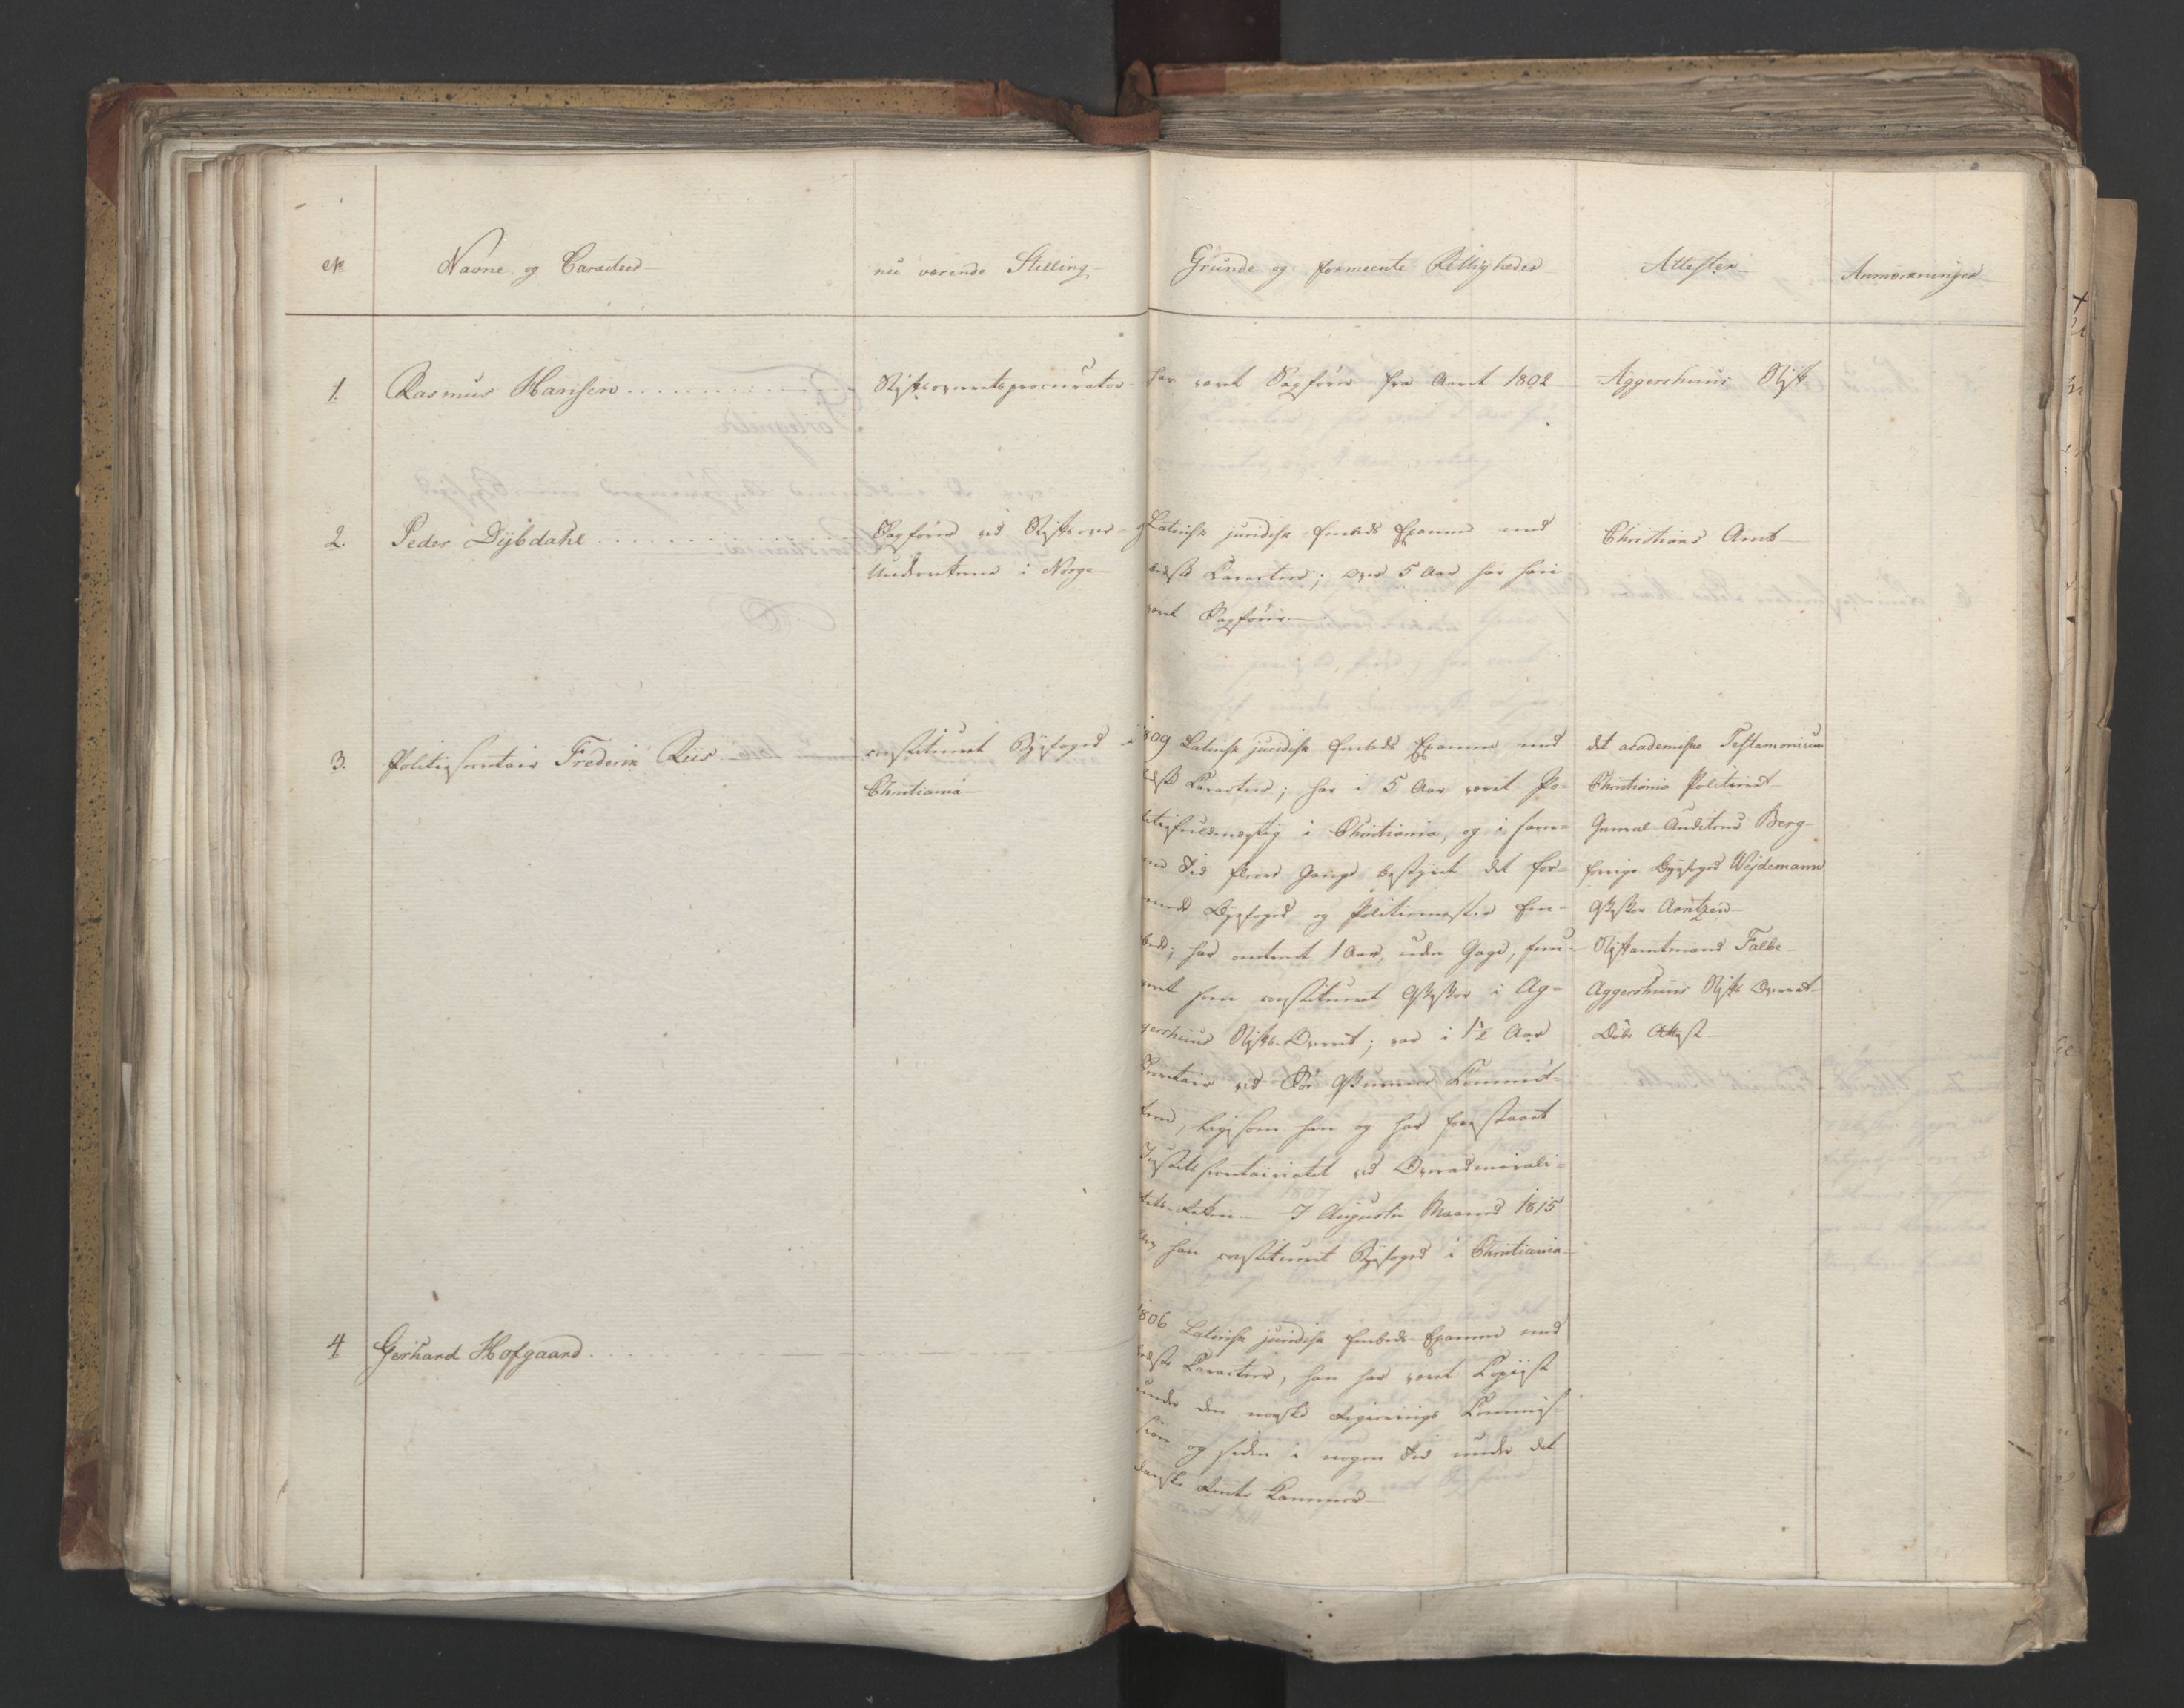 No Navne og Caracteer nu værende Stilling Grunde og formeente Rettigheder Attester Anmærkninger
1. Rasmus Hansen Stiftsoverretsprocurator har været Sagfører fra Aaret 1802 Aggershuus Stift
2. Peder Dybdahl Sagfører ved Stiftsover- og
Underretterne i Norge
Latinsk juridisk Embeds Examen med
bedste Caracteer; over 5 Aar har han
været Sagfører
Christians Amt
3. Politiesecretair Frederik Riis constitueret Byefoged i
Christiania
1809 Latinsk juridisk Embeds Examen med
bedste Caracteer; har i 5 Aar været Po-
litiefuldmægtig i Christiania, og i sam-
me Tid flere Gange bestyret det for-
eenede Byefoged og Politiemester Em-
bede; har omtrent 1 Aar, uden Gage, fun-
geret som constitueret Assessor i Ag-
gershuus Stifts-Overret; var i 1½ Aar
Secretair ved Committ-
teen, ligesom han og har forestaaet
Justitssecretairiatet ved Overadmirali-
tets-Retten. I Augusti Maaned 1815
blev han constitueret Byefoged i Christiania
det academiske Testamonium
Christiania Politieret
General-Auditeur Berg
forrige Byefoged Wejdemann
Assessor Arntzen
Stiftamtmand Falbe
Aggershuus Stifts Overret
Døbe Attest
4 Gerhard Hofgaard
1806 Latinsk juridisk Embeds-Examen med
bedste Caracteer, han har været Copiist
under den norske Regierings Commis-
sion og siden i nogen Tid under det
danske Rente Kammer